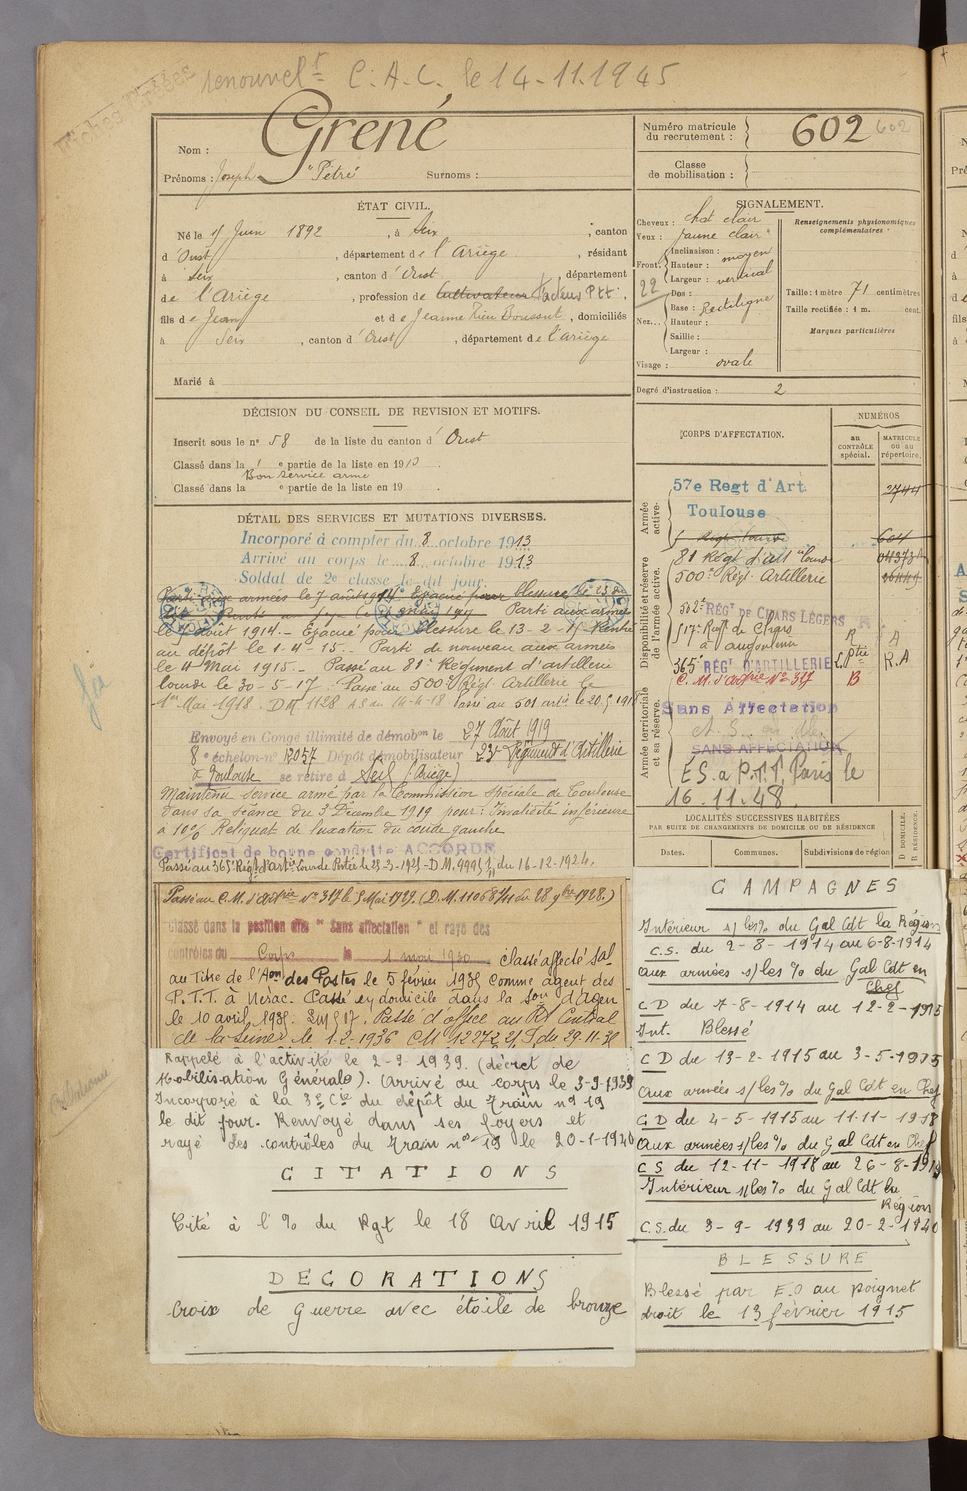 renouvelt C.A.C. le 14-11.1945
Fiches
Nom : Grené
Prénoms : Joseph "Pétré" Surnoms :
Numéro matricule du recrutement : 602 602
Classe de mobilisation :
ÉTAT CIVIL.
Né le Juin 1892, à Seix, canton
d'Oust, département de l'Ariège, résidant
à Seix, canton d'Oust, département
de l'Ariège, profession de Cultivateur Facteur Ptt.
fils de Jean et de Jeanne Rieu Boussut, domiciliés
à Seix, canton d'Oust, département de l'Ariège
Marié à
SIGNALEMENT.
Cheveux : chat clair
Yeux : jaune clair
Front : Inclinaison : moyen
Hauteur : vertical
Largeur :
22
Nez : Dos :
Base : Rectiligne
Hauteur :
Saillie :
Largeur :
Visage : ovale
Renseignements physionomiques complémentaires :
Taille : 1 mètre 71 centimètres
Taille rectifiée : 1 m. cent.
Marques particulières
Degré d'instruction : 2
DÉCISION DU CONSEIL DE REVISION ET MOTIFS.
Inscrit sous le n° 58 de la liste du canton d'Oust
Classé dans la 1e partie de la liste en 1913.
Bon service armé
Classé dans la e partie de la liste en 19 .
DÉTAIL DES SERVICES ET MUTATIONS DIVERSES.
Incorporé à compter du 8 octobre 1913
Arrivé au corps le 8 octobre 1913
Soldat de 2e classe le dit jour.
Parti aux armées le 7 août 1914. Evacué pour blessure le
Parti aux armées
le 7 août 1914.- Evacué pour blessure le 13-2-15 Rentré
au dépôt le 1-4-15.- Parti de nouveau aux armées
le 4 Mai 1915.- Passé au 81e Régiment d'artillerie
lourde le 30-5-17. Passé au 500e Régt Artillerie le
1er Mai 1918. DM 1128 A.S du 14-4-18 Passé au 501 artie le 20.5 1918
Envoyé en Congé illimité de démobon le 27 Août 1919
8e échelon-n° 12057 Dépôt démobilisateur 23e Régiment d'Artillerie
à Toulouse se retire à Seix (Ariège)
Maintenu service armé par la Commission spéciale de Toulouse
dans sa séance du 3 Décembre 1919 pour : Invalidité inférieure
à 10% Reliquat de luxation du coude gauche
Certificat de bonne conduite ACCORDÉ
Passé au 365e Régt d'artie Lourde Portée le 23-3-1925-D.M. 9995 du 16-12-1924.
Passé au C.M. d'artie N° 317 le 5 Mai 1929. (D.M. 11068 du 28 9bre 1928.)
Classé dans la position dite "Sans affectation" et rayé des
contrôles du Corps le 1 mai 1930 classé affecté spal
au Titre de l'Aon des Postes le 5 février 1935 comme agent des
P.T.T. à Nérac. Passé en domicile dans la Son d'Agen
le 10 avril 1935. Passé d'office au Rt Central
de la Seine le 1-2-1936 CM 12272 du 29-11-35
Rappelé à l'activité le 2-9-1939. (décret de
Mobilisation Générale). Arrivé au corps le 3-9-1939
Incorporé à la 3e Cie du dépôt du Train n° 19
le dit jour. Renvoyé dans ses foyers et
rayé des contrôles du Train n° 19 le 20-1-1940
CITATIONS
Cité à l'% du Rgt le 18 avril 1915
DECORATIONS
Croix de guerre avec étoile de bronze
CORPS D'AFFECTATION.
NUMÉROS
au CONTRÔLE spécial.
MATRICULE ou au répertoire.
Armée active.
57e Regt d'Art. 2744
Toulouse
604
Disponibilité et réserve de l'armée active.
81 Régt d'art Lourde
500e Régt Artillerie
502e RÉGT DE CHARS LÉGERS
517e Régt de Chars
à Angoulême R A
365e RÉGT D'ARTILLERIE L.Ptée R.A
C.M. d'artie N° 317 B
Armée territoriale et sa réserve.
Sans Affectation
SANS AFFECTATION
E S. a P.T.T. Paris le
16.11.48.
LOCALITÉS SUCCESSIVES HABITÉES
PAR SUITE DE CHANGEMENTS DE DOMICILE OU DE RÉSIDENCE
Dates. Communes. Subdivisions de région D DOMICILE. R RÉSIDENCE.
CAMPAGNES
Intérieur s/les% du Gal Cdt la Région
C.S. du 2-8-1914 au 6-8-1914
aux armées s/les % du Gal Cdt en
Chef
C D du 7-8-1914 au 12-2-1915
Int. Blessé
C D du 13-2-1915 au 3-5-1915
aux armées s/les% du Gal Cdt en Chef
C D du 4-5-1915 au 11-11-1918
aux armées s/les % du Gal Cdt en Chef
C S du 12-11-1918 au 26-8-1919
Intérieur s/les % du Gal Cdt la
Région
C.S. du 3-9-1939 au 20-2-1940
BLESSURE
Blessé par E.O au poignet
droit le 13 février 1915